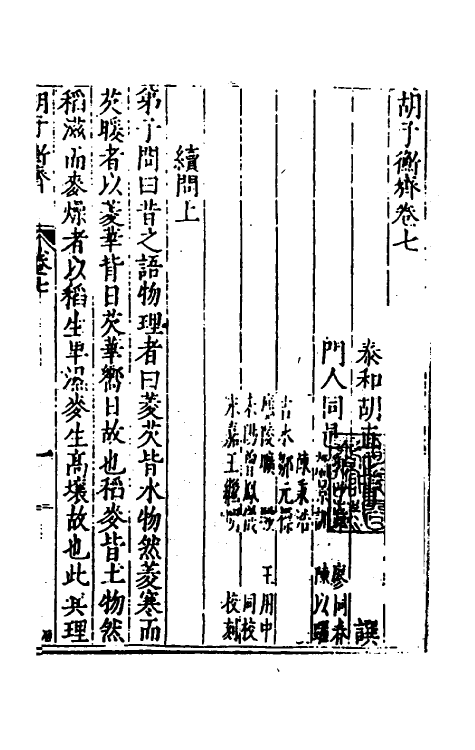 胡子衡齊卷七
泰和胡直 譔
門人同邑 廖同春
陳以躍
陳秉浩
吉水鄒元標
廬陵曠 王用中
耒陽曾鳳儀 同校
永嘉王繼明 校刻
續問上
弟子問曰昔之語物理者曰菱芡皆水物然菱寒而
芡暖者以菱華背日芡華嚮日故也稻麥皆土物然
稻滋而麥燥者以稻生卑濕麥生高壤故也此其理
胡子衡齊 卷七 一